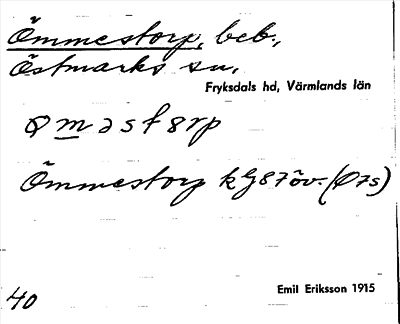 Ömmestorp, beb.,
Östmarks sn,
Fryksdals hd, Värmlands län
Ömmestorp kG87öv. (Ö7s)
40
Emil Eriksson 1915